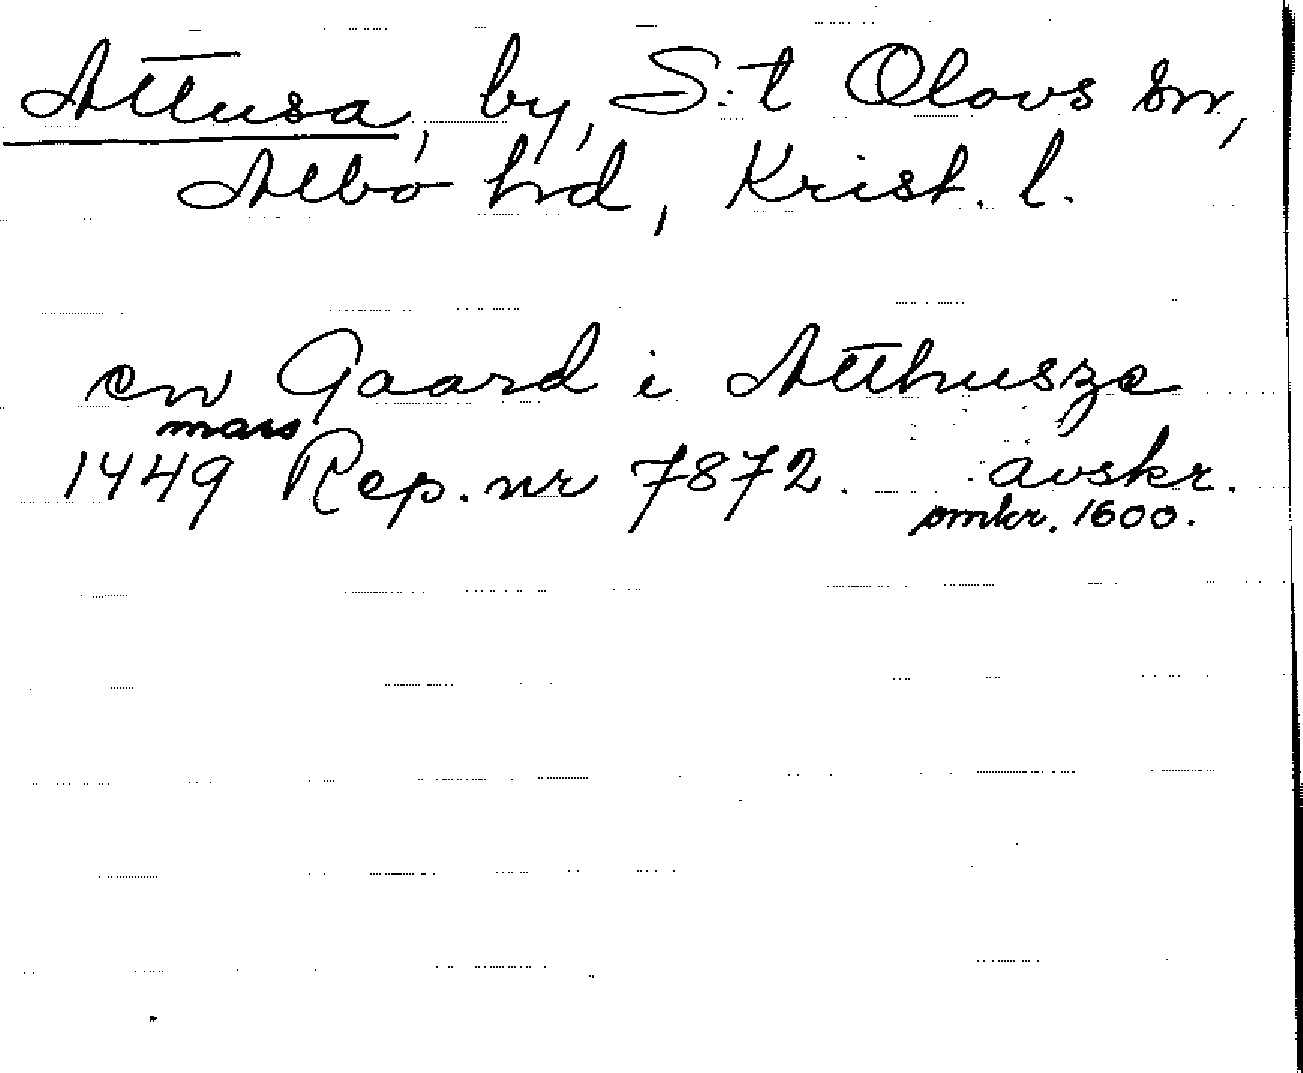 Attusa, by, S:t Olovs sn,
Albo hd, Krist. l.
en Gaard i Atthusze
mars
1449 Rep. nr 7872. avskr.
omkr. 1600.